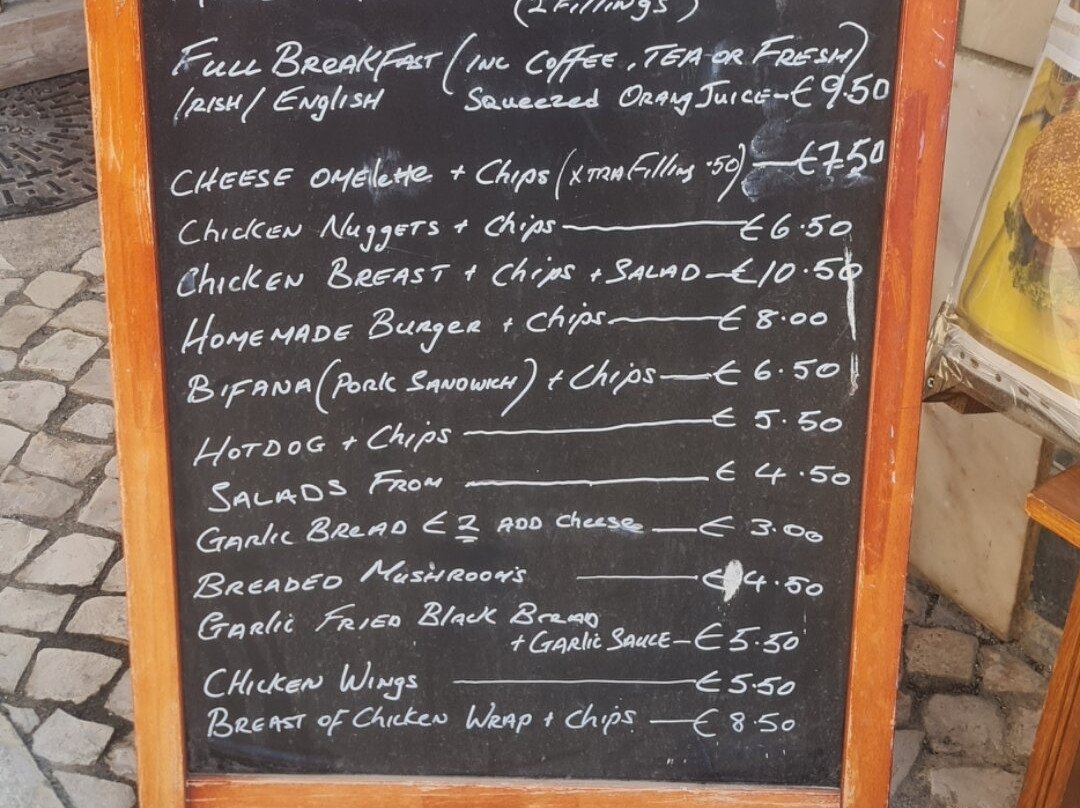 (2 Fillings)
Full Breakfast (inc Coffee, Tea or Fresh)
Irish / English Squeezed Orang Juice - €9.50
Cheese Omelette + Chips (xtra Filling .50) — €7.50
Chicken Nuggets + Chips — €6.50
Chicken Breast + Chips + Salad — €10.50
Homemade Burger + Chips — €8.00
Bifana (Pork Sandwich) + Chips — €6.50
Hotdog + Chips — €5.50
Salads From — €4.50
Garlic Bread €2 Add Cheese — €3.00
Breaded Mushrooms — €4.50
Garlic Fried Black Bread
+ Garlic Sauce - €5.50
Chicken Wings — €5.50
Breast of Chicken Wrap + Chips — €8.50